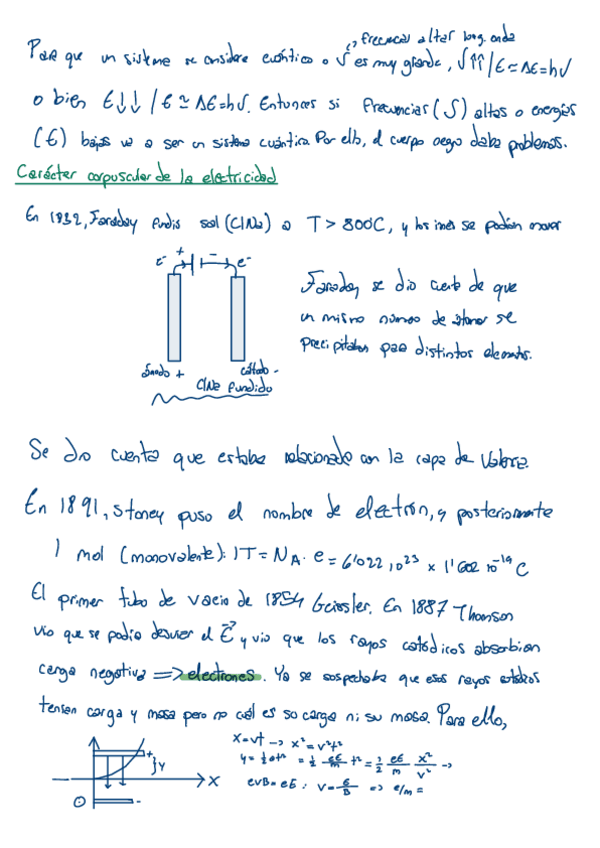 ↳ frecuencias altas long. onda
Para que un sistema se considere cuántico o ν es muy grande, ν↑↑ / E ≃ ΔE = hν
o bien E↓↓ / E ≃ ΔE = hν. Entonces si frecuencias (ν) altas o energías
(E) bajas va a ser un sistema cuántico. Por ello, el cuerpo negro daba problemas.
Carácter corpuscular de la electricidad
En 1832, Faraday fundió sal (ClNa) a T > 800°C, y los iones se podían mover
e⁻ + - e⁻
Faraday se dio cuenta de que
un mismo número de átomos se
precipitaban para distintos elementos.
ánodo + cátodo -
ClNa fundido
Se dio cuenta que estaba relacionado con la capa de Valencia.
En 1891, Stoney puso el nombre de electrón, y posteriormente
1 mol (monovalente): 1F = N_A · e = 6'022 10²³ × 1'602 10⁻¹⁹ C
El primer tubo de vacío de 1854 Geissler. En 1887 Thomson
vio que se podía desviar el E⃗ y vio que los rayos catódicos absorbían
carga negativa => electrones. Ya se sospechaba que esos rayos
tenían carga y masa pero no cuál es su carga ni su masa. Para ello,
x = vt → x² = v²t²
y = ½ at² = ½ eE/m t² = ½ eE/m x²/v² →
evB = eE : v = E/B => e/m =
+ } y
x
-